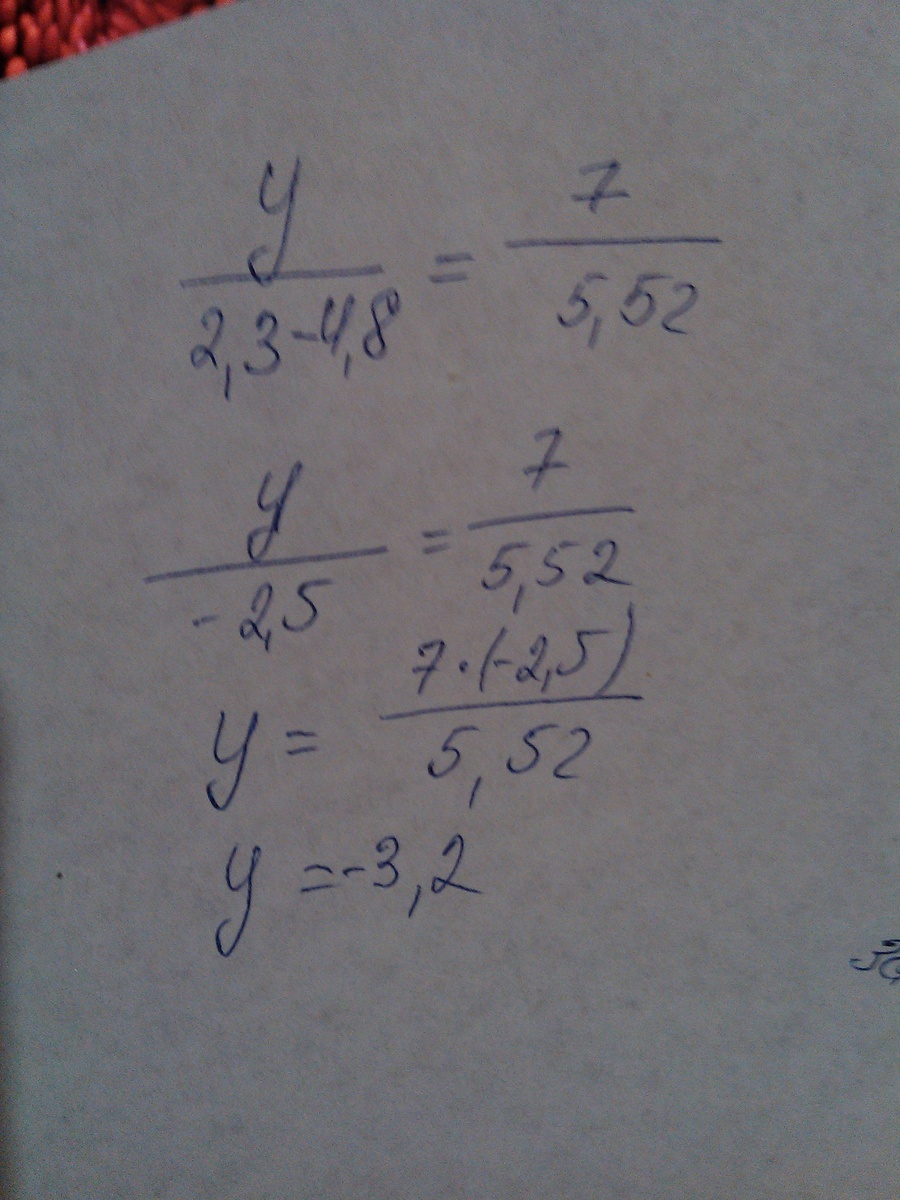 y/(2,3-4,8) = 7/5,52
y/(-2,5) = 7/5,52
y = 7·(-2,5)/5,52
y =-3,2